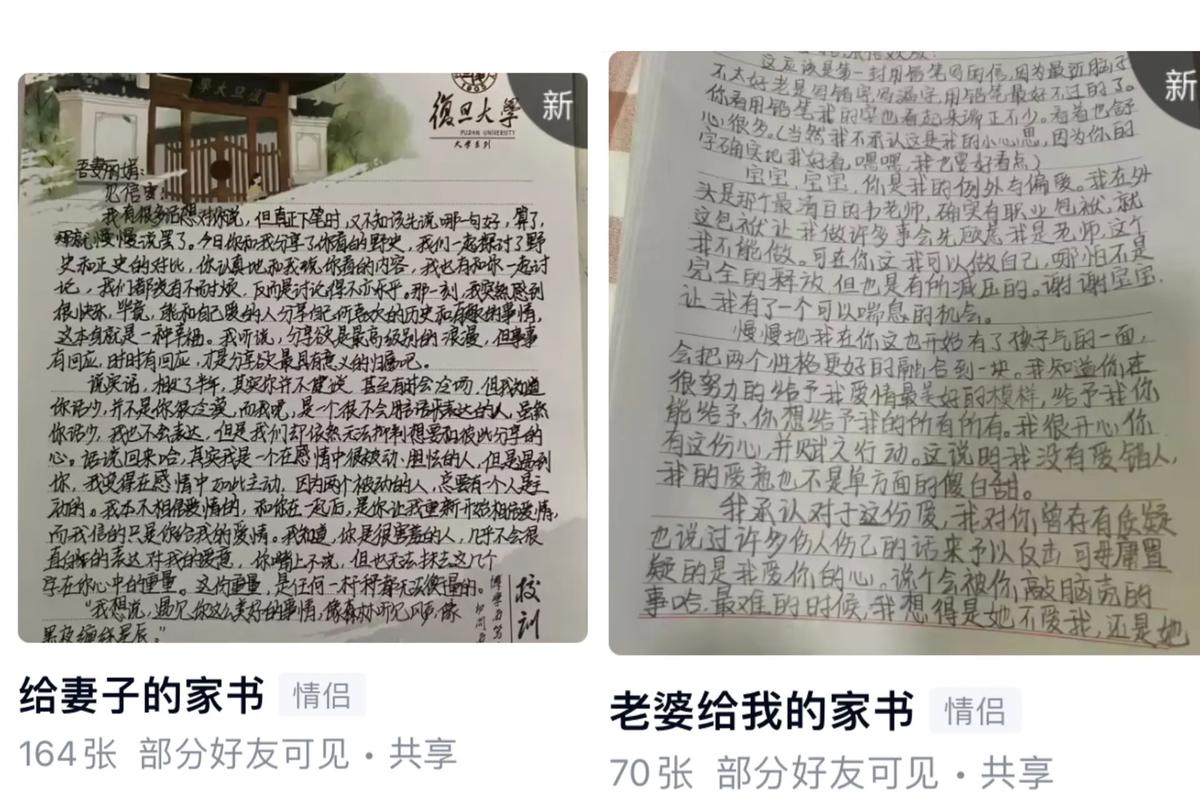 復旦大學
FUDAN UNIVERSITY
大学系列
新
吾妻丽娟:
见信安
我有很多话想对你说，但真正下笔时，又不知该先说哪一句好，算了，
那就慢慢说罢了。今日你和我分享了你看的野史，我们一起探讨了野
史和正史的对比，你认真地和我说你看的内容，我也有和你一起讨
论，我们都没有不耐烦，反而是讨论得不亦乐乎。那一刻，我突然感到
很快乐，毕竟，能和自己爱的人分享自己所喜欢的历史和有趣的事情，
这本身就是一种幸福。我听说，分享欲是最高级别的浪漫，但事事
有回应，时时有回应，才是分享欲最具有意义的归宿吧。
说实话，相处了半年，其实你并不健谈，甚至有时会冷场，但我知道
你话少，并不是你很冷漠，而我呢，是一个很不会用话语表达的人，虽然
你话少，我也不会表达，但是我们却依然无法抑制想要和彼此分享的
心。话说回来哈，其实我是一个在感情中很被动、胆怯的人，但是遇到
你，我变得在感情中如此主动，因为两个被动的人，总要有一个人是主
动的。我本不相信爱情的，和你在一起后，是你让我重新开始相信爱情，
而我信的只是你给我的爱情。我知道，你是很害羞的人，几乎不会很
直白的表达对我的爱意，你嘴上不说，但也无法抹去这几个
字在你心中的重量。这份重量，是任何一杆秤都无法衡量的。
“我想说，遇见你这么美好的事情，像森林听见风声，像
黑夜缠绵星辰。”
校训
新
这应该是第一封用铅笔写的信，因为最近脑子
不太好老是写错字写漏字，用铅笔最好不过的了。
你看用铅笔我的字也看起来端正不少。看着也舒
心很多。（当然我不承认这是我的小心思，因为你的
字确实比我好看，嘿嘿，我也要好看点）
宝宝，宝宝，你是我的例外与偏爱。我在外
头是那个最清白的书老师，确实有职业包袱，就
这包袱让我做许多事会先顾忌我是老师，这个
我不能做。可在你这我可以做自己，哪怕不是
完全的释放，但也是有所减压的。谢谢宝宝，
让我有了一个可以喘息的机会。
慢慢地我在你这也开始有了孩子气的一面，
会把两个性格更好的融合到一块。我知道你在
很努力的给予我爱情最美好的模样，给予我你
能给予，你想给予我的所有所有。我很开心，你
有这份心，并赋之行动。这说明我没有爱错人，
我的爱意也不是单方面的傻白甜。
我承认对于这份爱，我对你曾存有质疑
也说过许多伤人伤己的话来予以反击，可毋庸置
疑的是我爱你的心。说个会被你敲脑壳的
事哈，最难的时候，我想得是她不爱我，还是她
给妻子的家书 情侣
164张 部分好友可见・共享
老婆给我的家书 情侣
70张 部分好友可见・共享